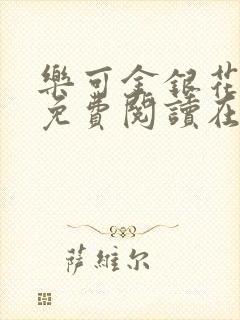 樂可金銀花
免費閱讀在
萨維尔